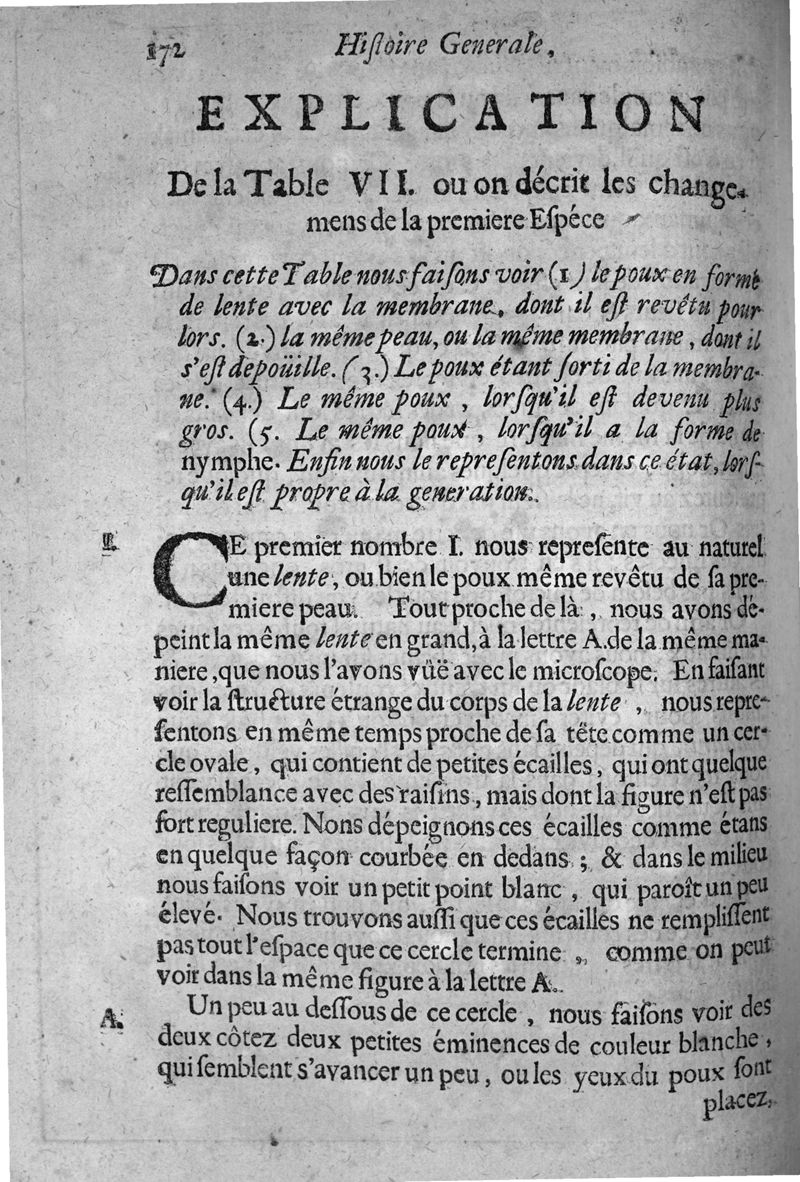 172 Hiſtoire Generale,
EXPLICATION
De la Table VII. ou on décrit les change-
mens de la premiere Eſpéce
Dans cette Table nous faiſons voir (1) le poux en forme
de lente avec la membrane, dont il eſt revêtu pour
lors. (2.) la même peau, ou la même membrane, dont il
s'eſt depoüille. (3.) Le poux étant ſorti de la membra-
ne. (4.) Le même poux, lorſqu'il eſt devenu plus
gros. (5. Le même poux, lorſqu'il a la forme de
nymphe. Enfin nous le repreſentons dans çe état, lorſ-
qu'il eſt propre à la generation.
I. CE premier nombre I. nous repreſente au naturel
une lente, ou bien le poux même revêtu de ſa pre-
miere peau. Tout proche de là, nous avons dé-
peint la même lente en grand, à la lettre A. de la même ma-
niere, que nous l'avons vûë avec le microſcope. En faiſant
voir la ſtructure étrange du corps de la lente, nous repre-
ſentons en même temps proche de ſa tête comme un cer-
cle ovale, qui contient de petites écailles, qui ont quelque
reſſemblance avec des raiſins, mais dont la figure n'eſt pas
fort reguliere. Nons dépeignons ces écailles comme étans
en quelque façon courbée en dedans; & dans le milieu
nous faiſons voir un petit point blanc, qui paroît un peu
élevé. Nous trouvons auſſi que ces écailles ne rempliſſent
pas tout l'eſpace que ce cercle termine, comme on peut
voir dans la même figure à la lettre A.
A. Un peu au deſſous de ce cercle, nous faiſons voir des
deux côtez deux petites éminences de couleur blanche,
qui ſemblent s'avancer un peu, ou les yeux du poux ſont
placez,